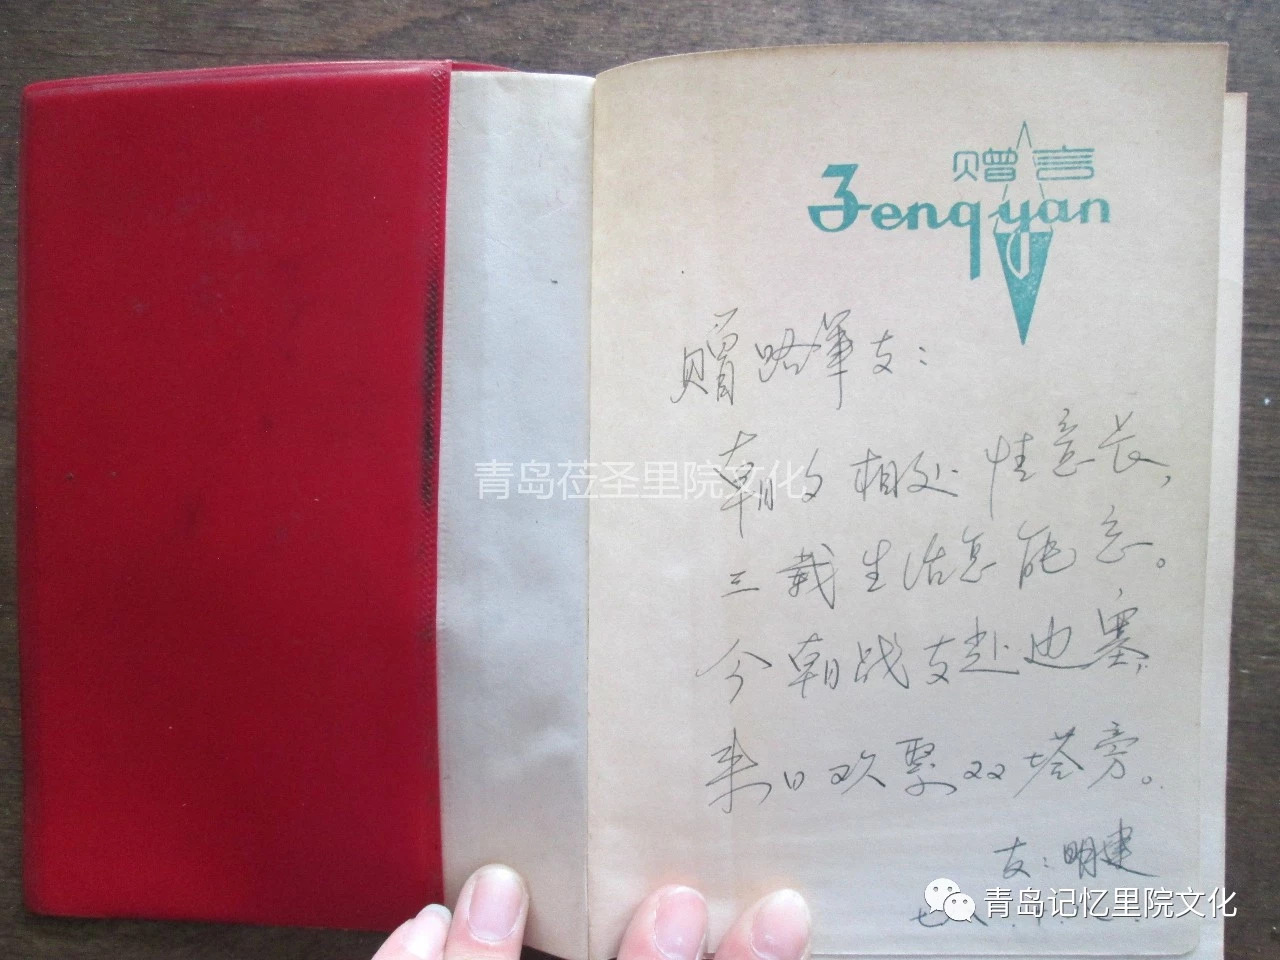 赠言
Zengyan
赠路军友：
朝夕相处情意长，
三载生活怎能忘。
今朝战友赴边塞，
来日欢聚双塔旁。
友：明建
青岛莅圣里院文化
青岛记忆里院文化